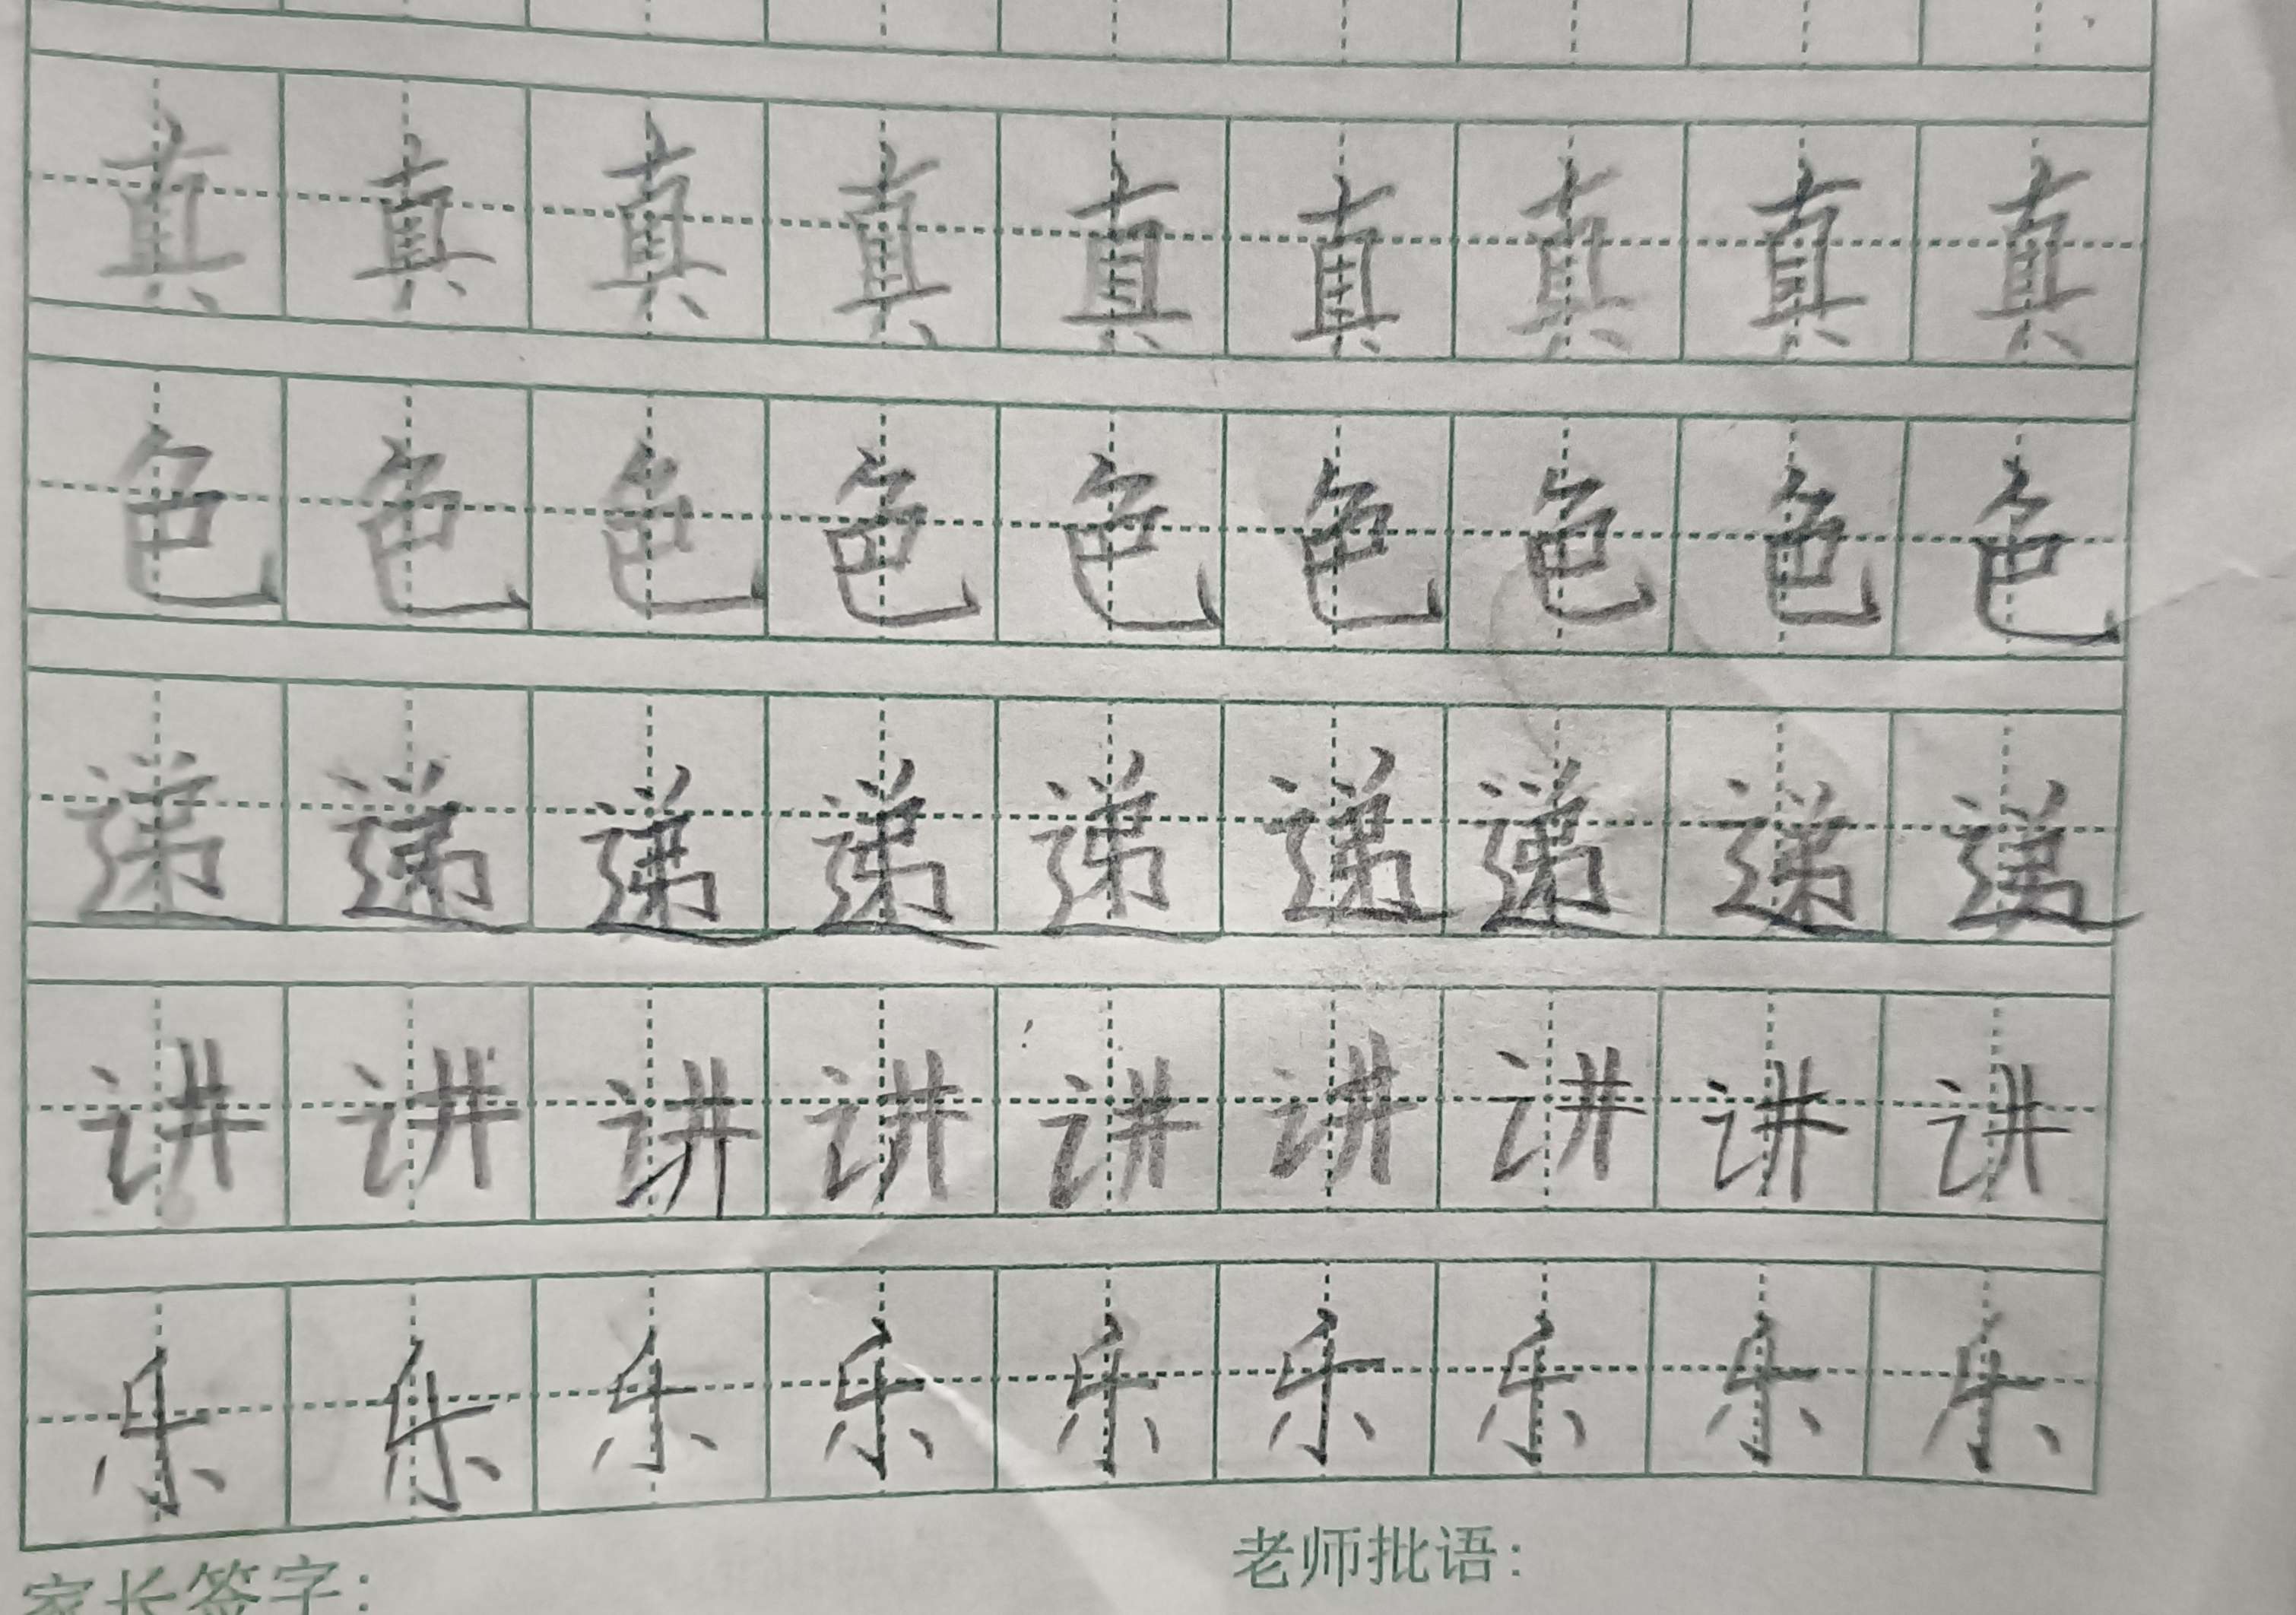 真真真真真真真真真
色色色色色色色色色
递递递递递递递递递
讲讲讲讲讲讲讲讲讲
乐乐乐乐乐乐乐乐乐
家长签字： 老师批语：